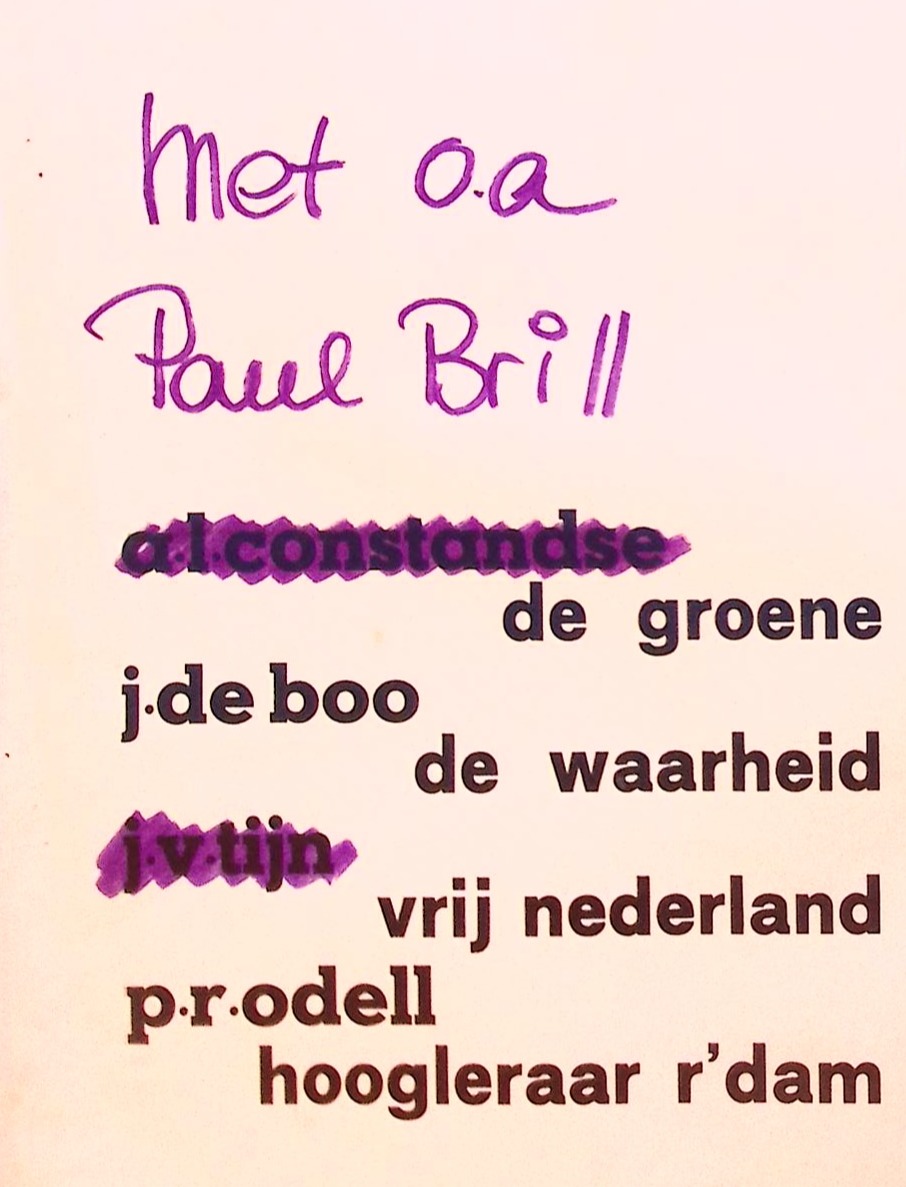 Met o.a
Paul Brill
a.l.constandse
de groene
j.de boo
de waarheid
j.v.tijn
vrij nederland
p.r.odell
hoogleraar r'dam